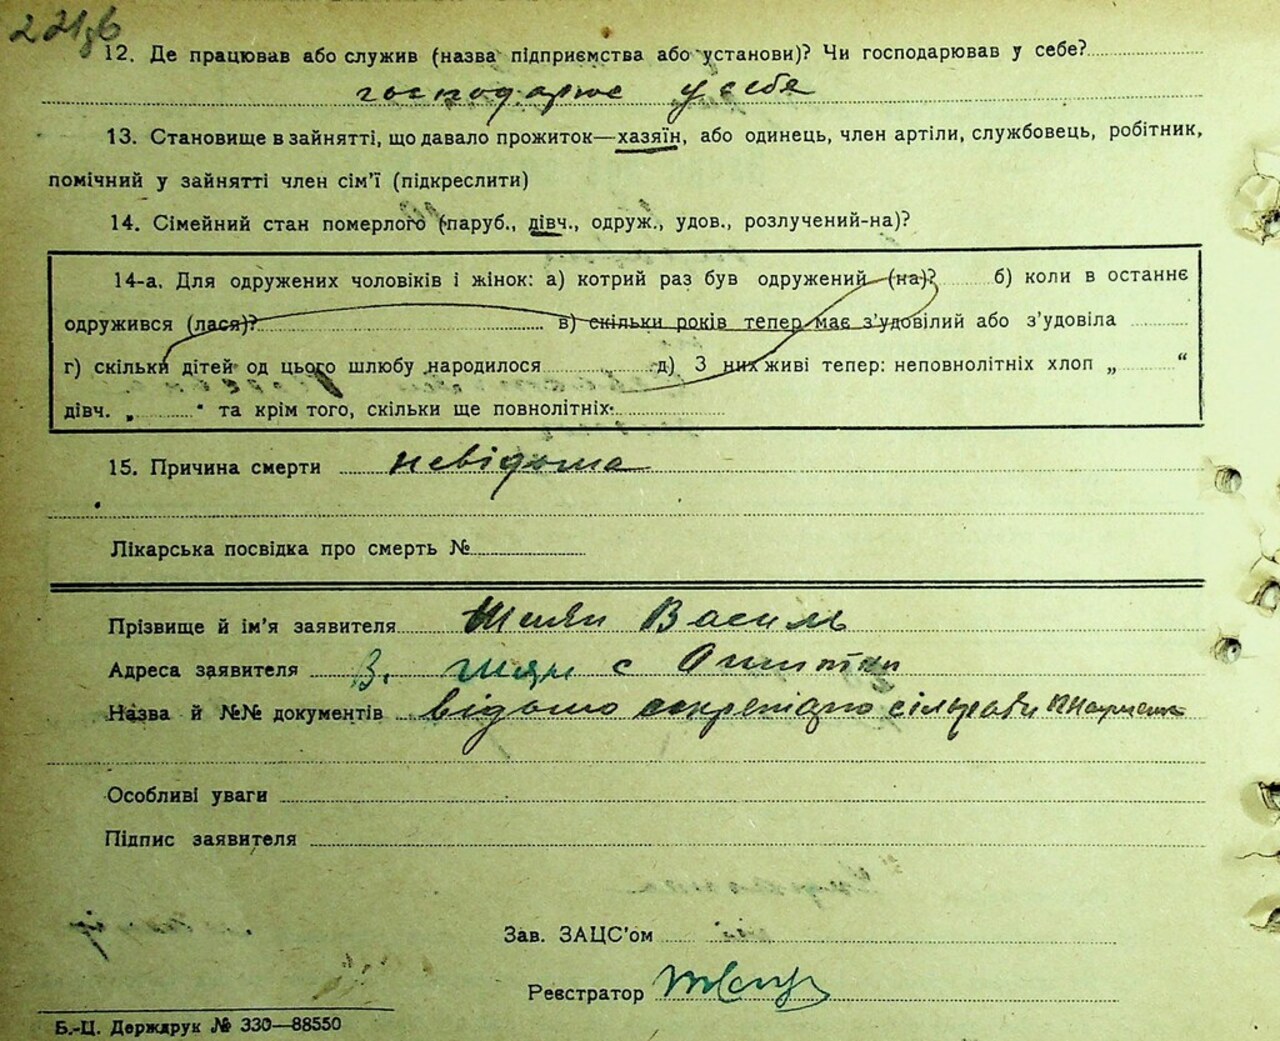 12. Де працював або служив (назва підприємства або установи)? Чи господарював у себе?
господарює у себе
13. Становище в зайнятті, що давало прожиток—хазяїн, або одинець, член артіли, службовець, робітник,
помічний у зайнятті член сім'ї (підкреслити)
14. Сімейний стан померлого (паруб., дівч., одруж., удов., розлучений-на)?
14-а. Для одружених чоловіків і жінок: а) котрий раз був одружений (на)? б) коли в останнє
одружився (лася)? в) скільки років тепер має з'удовілий або з'удовіла
г) скільки дітей од цього шлюбу народилося д) З них живі тепер: неповнолітніх хлоп „ “
дівч. „ “ та крім того, скільки ще повнолітніх
15. Причина смерти невідома
Лікарська посвідка про смерть №
Прізвище й ім'я заявителя Василь
Адреса заявителя с
Назва й №№ документів відомо сільради
Особливі уваги
Підпис заявителя
Зав. ЗАЦС'ом
Реєстратор
Б.-Ц. Держдрук № 330—88550